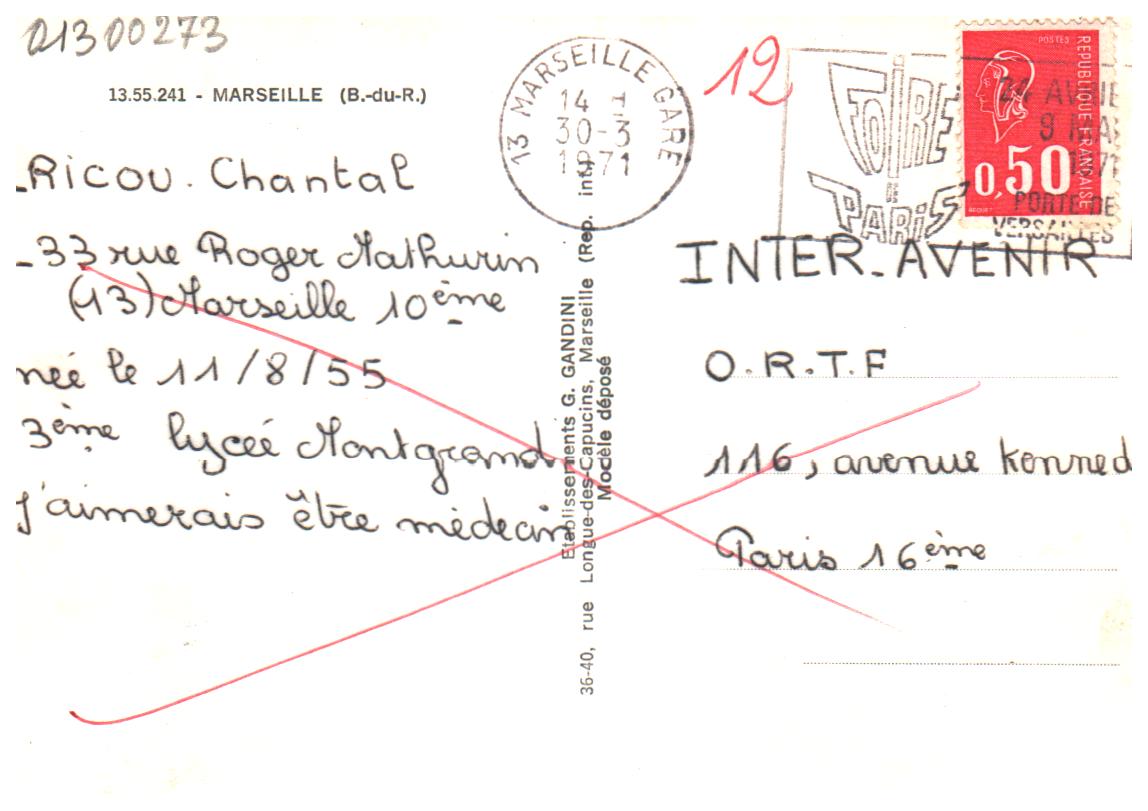 01300273
13.55.241 - MARSEILLE (B.-du-R.)
Ricou. Chantal
- 33 rue Roger Mathurin
(13) Marseille 10ème
née le 11/8/55
3ème lycée Montgrand
j'aimerais être médecin
Etablissements G. GANDINI
36-40, rue Longue-des-Capucins, Marseille (Rep. int.)
Modèle déposé
13 MARSEILLE GARE
14 H
30-3
1971
12
FOIRE
DE
PARIS
24 AVRIL
9 MAI
1971
PORTE DE
VERSAILLES
POSTES
REPUBLIQUE FRANÇAISE
0,50
BEQUET
INTER-AVENIR
O.R.T.F
116, avenue Kenned
Paris 16ème